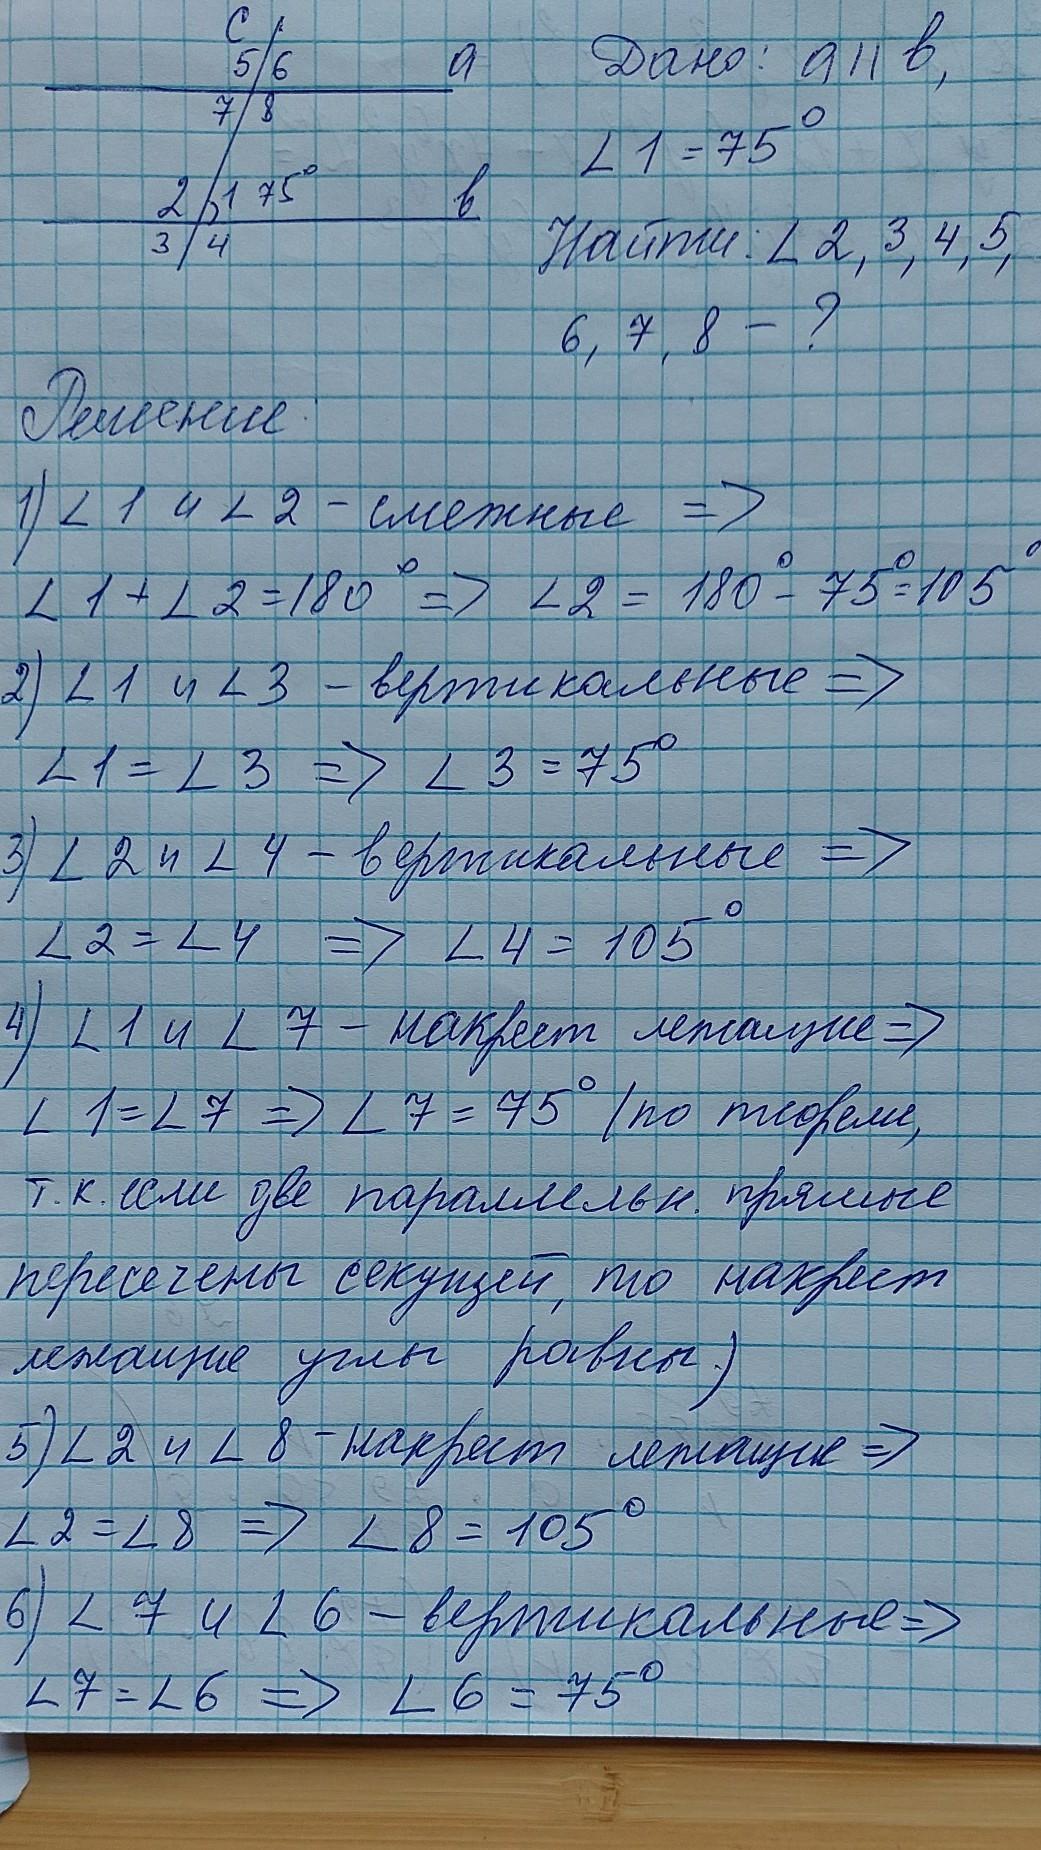 c
5 6 a
7 8
2 1 75° в
3 4
Дано: a || в,
∠1 = 75°
Найти: ∠2, 3, 4, 5,
6, 7, 8 – ?
Решение:
1) ∠1 и ∠2 – смежные =>
∠1 + ∠2 = 180° => ∠2 = 180° – 75° = 105°
2) ∠1 и ∠3 – вертикальные =>
∠1 = ∠3 => ∠3 = 75°
3) ∠2 и ∠4 – вертикальные =>
∠2 = ∠4 => ∠4 = 105°
4) ∠1 и ∠7 – накрест лежащие =>
∠1 = ∠7 => ∠7 = 75° (по теореме,
т.к. если две параллельн. прямые
пересечены секущей, то накрест
лежащие углы равны.)
5) ∠2 и ∠8 – накрест лежащие =>
∠2 = ∠8 => ∠8 = 105°
6) ∠7 и ∠6 – вертикальные =>
∠7 = ∠6 => ∠6 = 75°